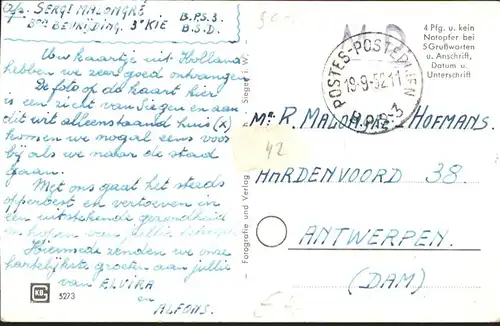 Afz. SERGE MALONGRÉ B.P.S.3
3DE BEVRIJDING. 3e KIE B.S.D.
Uw kaartje uit Holland
hebben we zeer goed ontvangen
De foto op de kaart hier
is een zicht van Siegen en aan
dit wit alleenstaand huis (X)
komen we nogal eens voor
bij als we naar de stad
gaan.
Met ons gaat het steeds
opperbest en vertoeven in
een uitstekende gezondheid
en hopen van jullie
Hiermede zenden we onze
hartelijkste groeten aan jullie
van ELVIRA
en
ALFONS.
KB
5273
- Fotografie und Verlag Siegen i. W. -
4 Pfg. u. kein
Notopfer bei
5 Grußworten
u. Anschrift,
Datum u.
Unterschrift
POSTES-POSTERIJEN
19-9-52 11
B.P.S-3
Mr R. MALONGRÉ-HOFMANS.
42
HARDENVOORD 38.
ANTWERPEN.
(DAM)